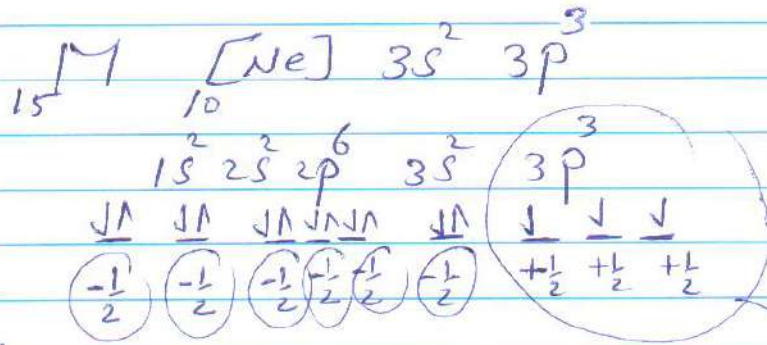 ₁₅M ₁₀[Ne] 3s² 3p³
1s² 2s² 2p⁶ 3s² 3p³
↓↑ ↓↑ ↓↑ ↓↑ ↓↑ ↓↑ ↓ ↓ ↓
-1/2 -1/2 -1/2 -1/2 -1/2 -1/2 +1/2 +1/2 +1/2